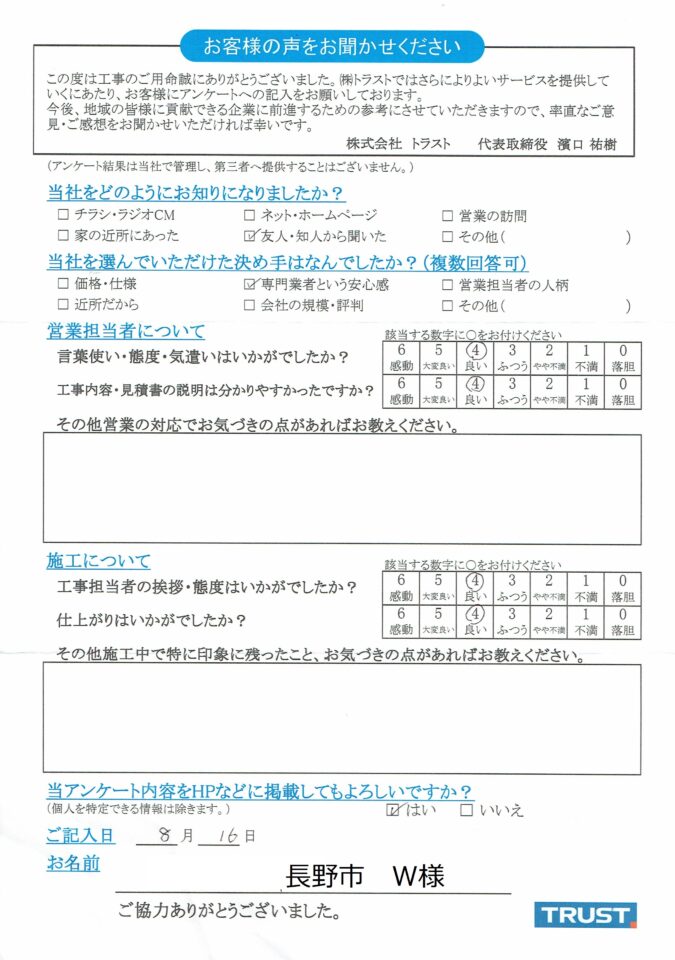 お客様の声をお聞かせください
この度は工事のご用命誠にありがとうございました。㈱トラストではさらによりよいサービスを提供して
いくにあたり、お客様にアンケートへの記入をお願いしております。
今後、地域の皆様に貢献できる企業に前進するための参考にさせていただきますので、率直なご意
見・ご感想をお聞かせいただければ幸いです。
株式会社 トラスト 代表取締役 濱口 祐樹
(アンケート結果は当社で管理し、第三者へ提供することはございません。)
当社をどのようにお知りになりましたか？
□ チラシ・ラジオCM □ ネット・ホームページ □ 営業の訪問
□ 家の近所にあった ☑ 友人・知人から聞いた □ その他( )
当社を選んでいただけた決め手はなんでしたか？(複数回答可)
□ 価格・仕様 ☑ 専門業者という安心感 □ 営業担当者の人柄
□ 近所だから □ 会社の規模・評判 □ その他( )
営業担当者について 該当する数字に○をお付けください
言葉使い・態度・気遣いはいかがでしたか？ 6 5 ④ 3 2 1 0
感動 大変良い 良い ふつう やや不満 不満 落胆
工事内容・見積書の説明は分かりやすかったですか？ 6 5 ④ 3 2 1 0
感動 大変良い 良い ふつう やや不満 不満 落胆
その他営業の対応でお気づきの点があればお教えください。
施工について 該当する数字に○をお付けください
工事担当者の挨拶・態度はいかがでしたか？ 6 5 ④ 3 2 1 0
感動 大変良い 良い ふつう やや不満 不満 落胆
仕上がりはいかがでしたか？ 6 5 ④ 3 2 1 0
感動 大変良い 良い ふつう やや不満 不満 落胆
その他施工中で特に印象に残ったこと、お気づきの点があればお教えください。
当アンケート内容をHPなどに掲載してもよろしいですか？
(個人を特定できる情報は除きます。) ☑ はい □ いいえ
ご記入日 8 月 16 日
お名前 長野市 W様
ご協力ありがとうございました。
TRUST.